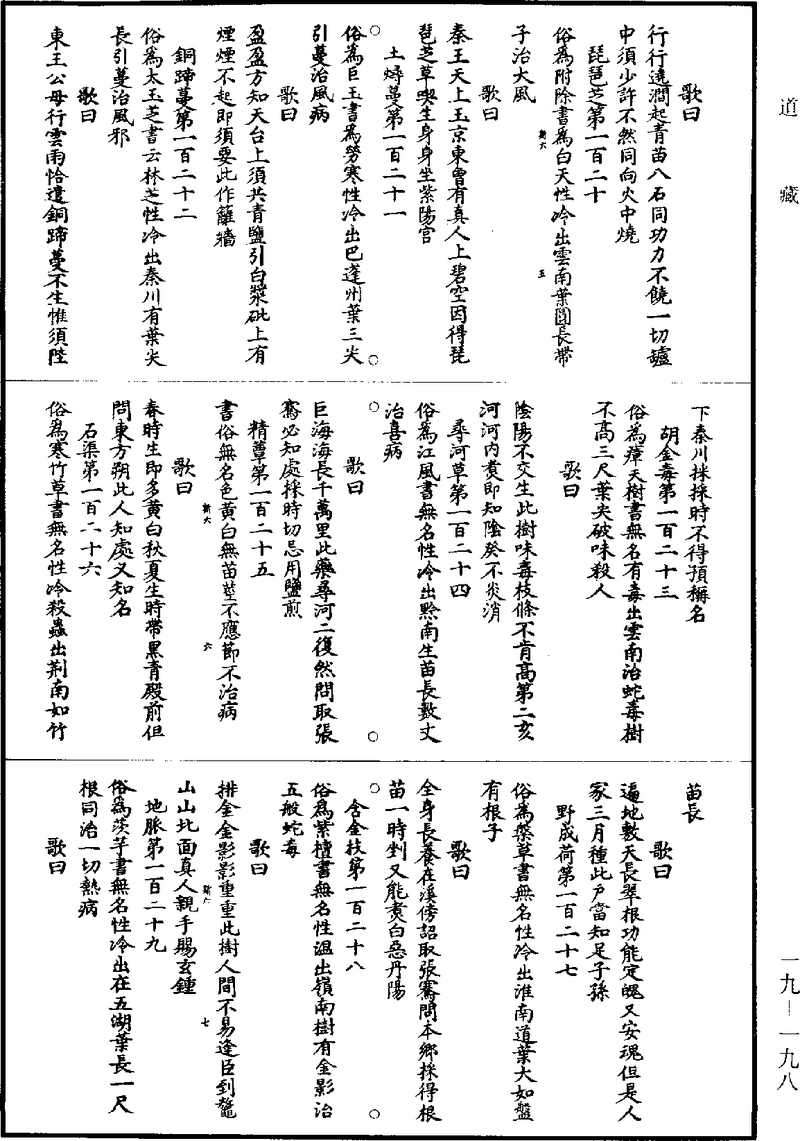 道藏
歌曰
行行遶澗起青苗八石同功力不饒一切罏
中須少許不然同向火中燒
琵琶芝第一百二十
俗為附除書為白天性冷出雲南葉圓長帶
子治大風
歌曰
秦王天上玉京東曾有真人上碧空因得琵
琶芝草喫生身身坐紫陽宮
土燖蔓第一百二十一
俗為巨玉書為勞寒性冷出巴蓬州葉三尖
引蔓治風病
歌曰
盈盈方知天台上須共青鹽引白漿砒上有
煙煙不起即須要此作籬牆
銅蹄蔓第一百二十二
俗為太玉芝書云林芝性冷出秦川有葉尖
長引蔓治風邪
歌曰
東王公母行雲雨恰遺銅蹄蔓不生惟須陛
下秦川採採時不得預稱名
胡金毒第一百二十三
俗為瘴天樹書無名有毒出雲南治蛇毒樹
不高三尺葉尖破味殺人
歌曰
陰陽不交生此樹味毒枝條不肯高第二亥
河河內煑即知陰癸不炎消
尋河草第一百二十四
俗為江風書無名性冷出黔南生苗長數丈
治喜病
歌曰
巨海海長千萬里此藥尋河二復然問取張
騫必知處採時切忌用鹽煎
精蕈第一百二十五
書俗無名色黃白無苗莖不應節不治病
歌曰
春時生即多黃白秋夏生時帶黑青殿前但
問東方朔此人知處又知名
石渠第一百二十六
俗為寒竹草書無名性冷殺蟲出荊南如竹
苗長
歌曰
遍地敷天長翠根功能定魄又安魂但是人
家三月種此戶當知足子孫
野成荷第一百二十七
俗為藥草書無名性冷出淮南道葉大如盤
有根子
歌曰
全身長養在溪傍詔取張騫問本鄉採得根
苗一時剉又能煑白惡丹陽
含金枝第一百二十八
俗為紫檀書無名性溫出嶺南樹有金影治
五般蛇毒
歌曰
排金金影影重重此樹人間不易逢臣到鼇
山山北面真人親手賜玄鍾
地脈第一百二十九
俗為茨芋書無名性冷出在五湖葉長一尺
根同治一切熱病
歌曰
五
六
七
一九—一九八